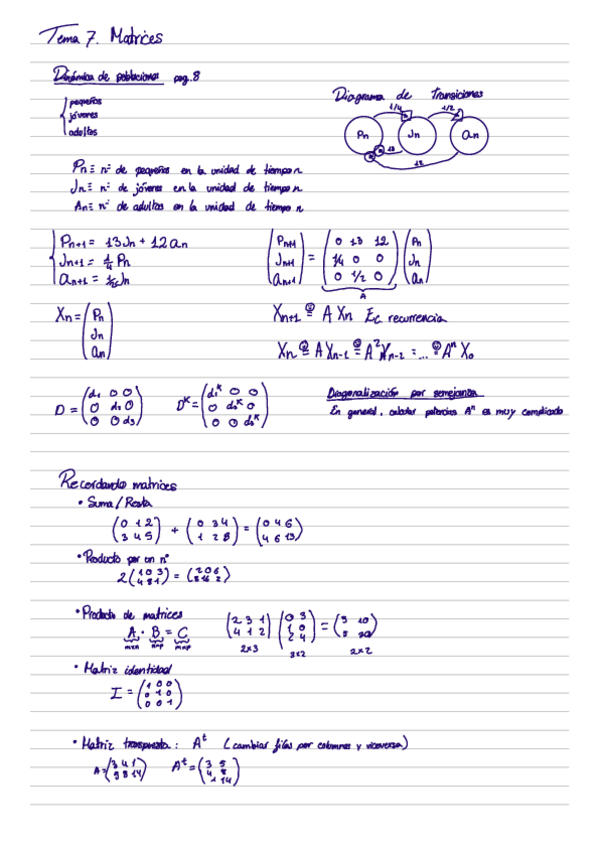 Tema 7. Matrices
Dinámica de poblaciones pag.8
pequeños
jóvenes
adultos
Diagrama de transiciones
1/4 1/2
Pn Jn an
13
12
Pn ≡ nº de pequeños en la unidad de tiempo n
Jn ≡ nº de jóvenes en la unidad de tiempo n
An ≡ nº de adultos en la unidad de tiempo n
Pn+1 = 13Jn + 12an
Jn+1 = 1/4 Pn
an+1 = 1/2 Jn
(Pn+1 Jn+1 an+1) = (0 13 12
1/4 0 0
0 1/2 0) (Pn Jn an)
A
Xn = (Pn Jn an)
Xn+1 = A Xn Ec recurrencia
Xn = A Xn-1 = A²Xn-2 = ... = Aⁿ X₀
D = (d₁ 0 0
0 d₂ 0
0 0 d₃)
Dᴷ = (d₁ᴷ 0 0
0 d₂ᴷ 0
0 0 d₃ᴷ)
Diagonalización por semejanza
En general, calcular potencias Aⁿ es muy complicado
Recordando matrices
• Suma/Resta
(0 1 2
3 4 5) + (0 3 4
1 2 8) = (0 4 6
4 6 13)
• Producto por un nº
2(1 0 3
4 8 1) = (2 0 6
8 16 2)
• Producto de matrices
A · B = C
mxn nxp mxp
(2 3 1
4 1 2) (0 3
1 0
2 4) =
2x3 3x2 2x2
• Matriz identidad
I = (1 0 0
0 1 0
0 0 1)
• Matriz transpuesta: Aᵗ (cambiar filas por columnas y viceversa)
A = (3 4 1
5 8 14) Aᵗ = (3 5
4 8
1 14)